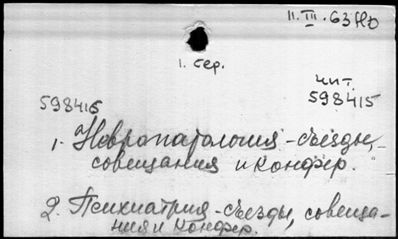 11.III.63 НЮ
1. сер.
чит.
598416
598415
1. Невропатология - съезды,
совещания и конфер.
2. Психиатрия - съезды, совеща-
ния и конфер.